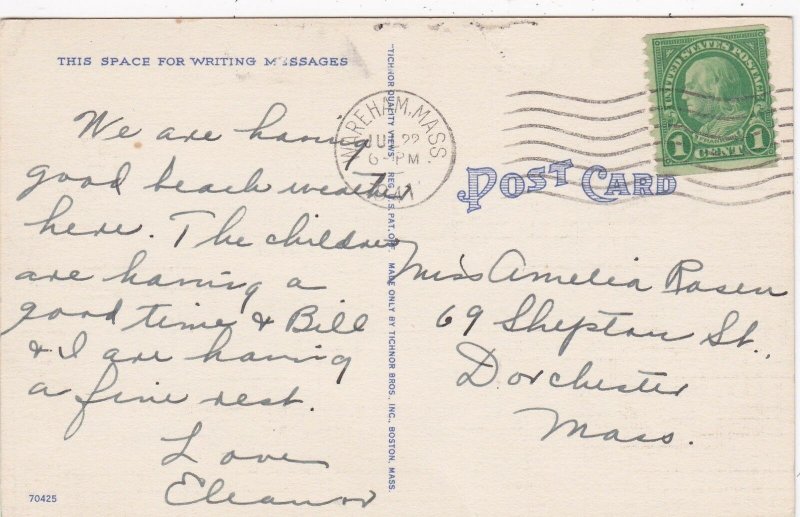 THIS SPACE FOR WRITING MESSAGES
We are having
good beach weather
here. The children
are having a
good time & Bill
& I are having
a fine rest.
Love
Eleanor
70425
"TICHNOR QUALITY VIEWS," REG. U. S. PAT. OFF. MADE ONLY BY TICHNOR BROS., INC., BOSTON, MASS.
WAREHAM, MASS.
22
6 PM
1941
UNITED STATES POSTAGE
FRANKLIN
1 CENT 1
POST CARD
Miss Amelia Rosen
69 Shepton St.
Dorchester
Mass.